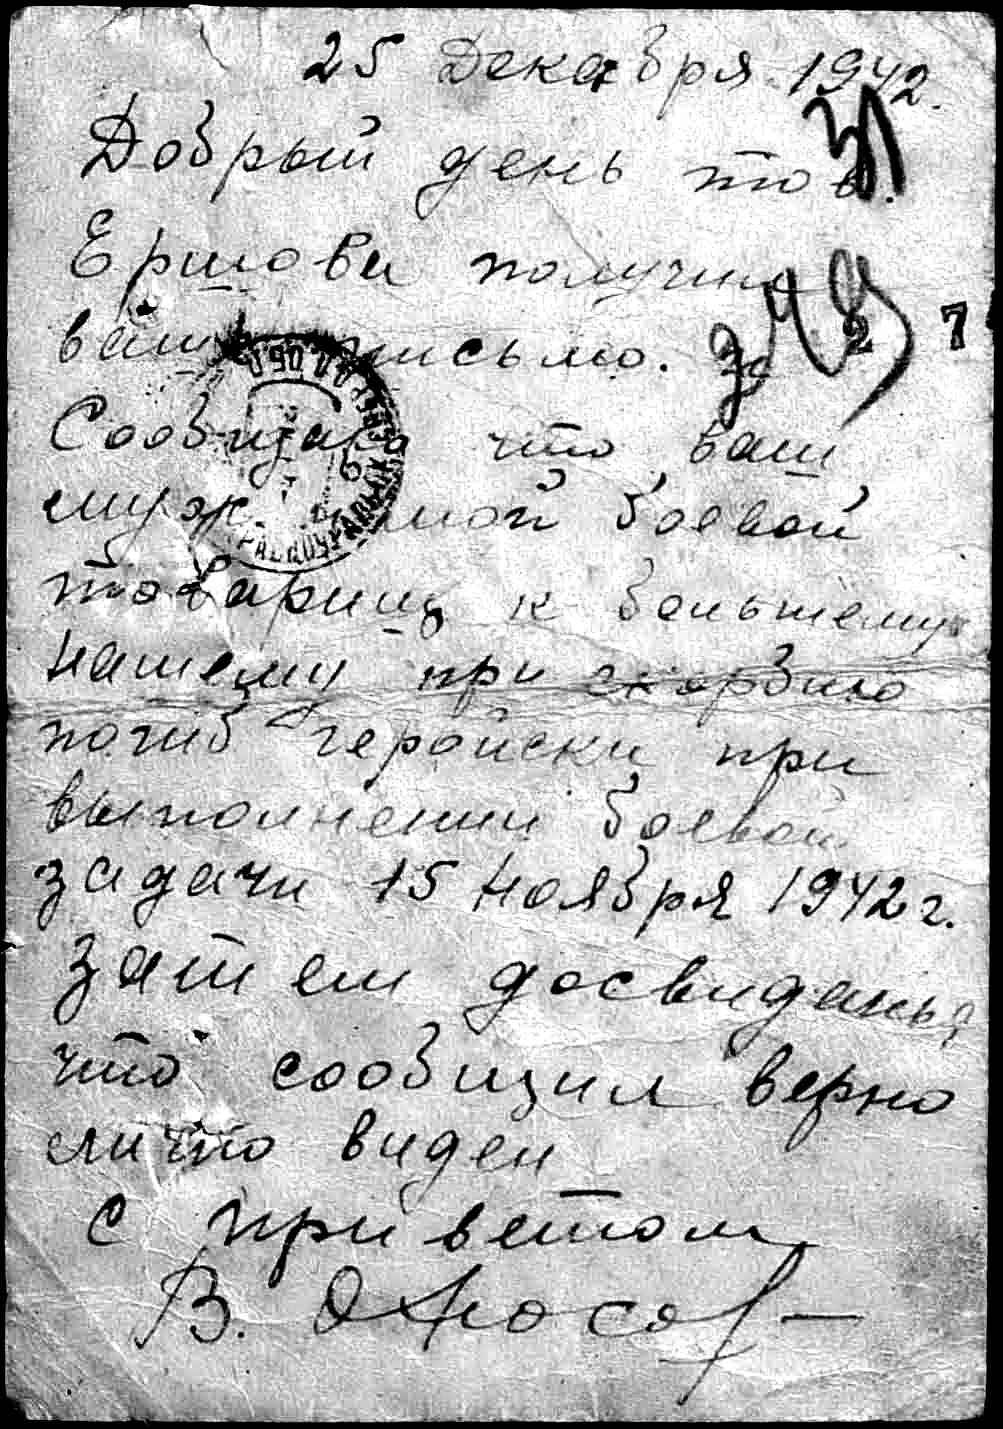 25 Декабря 1942.
Добрый день тов.
Ершова получил
ваше письмо. За
2 7
Сообщаю что ваш
муж мой боевой
товарищ к большему
нашему прискорбию
погиб геройски при
выполнении боевой
задачи 15 Ноября 1942 г.
Затем досвиданья
что сообщил верно
лично видел
с приветом
В.